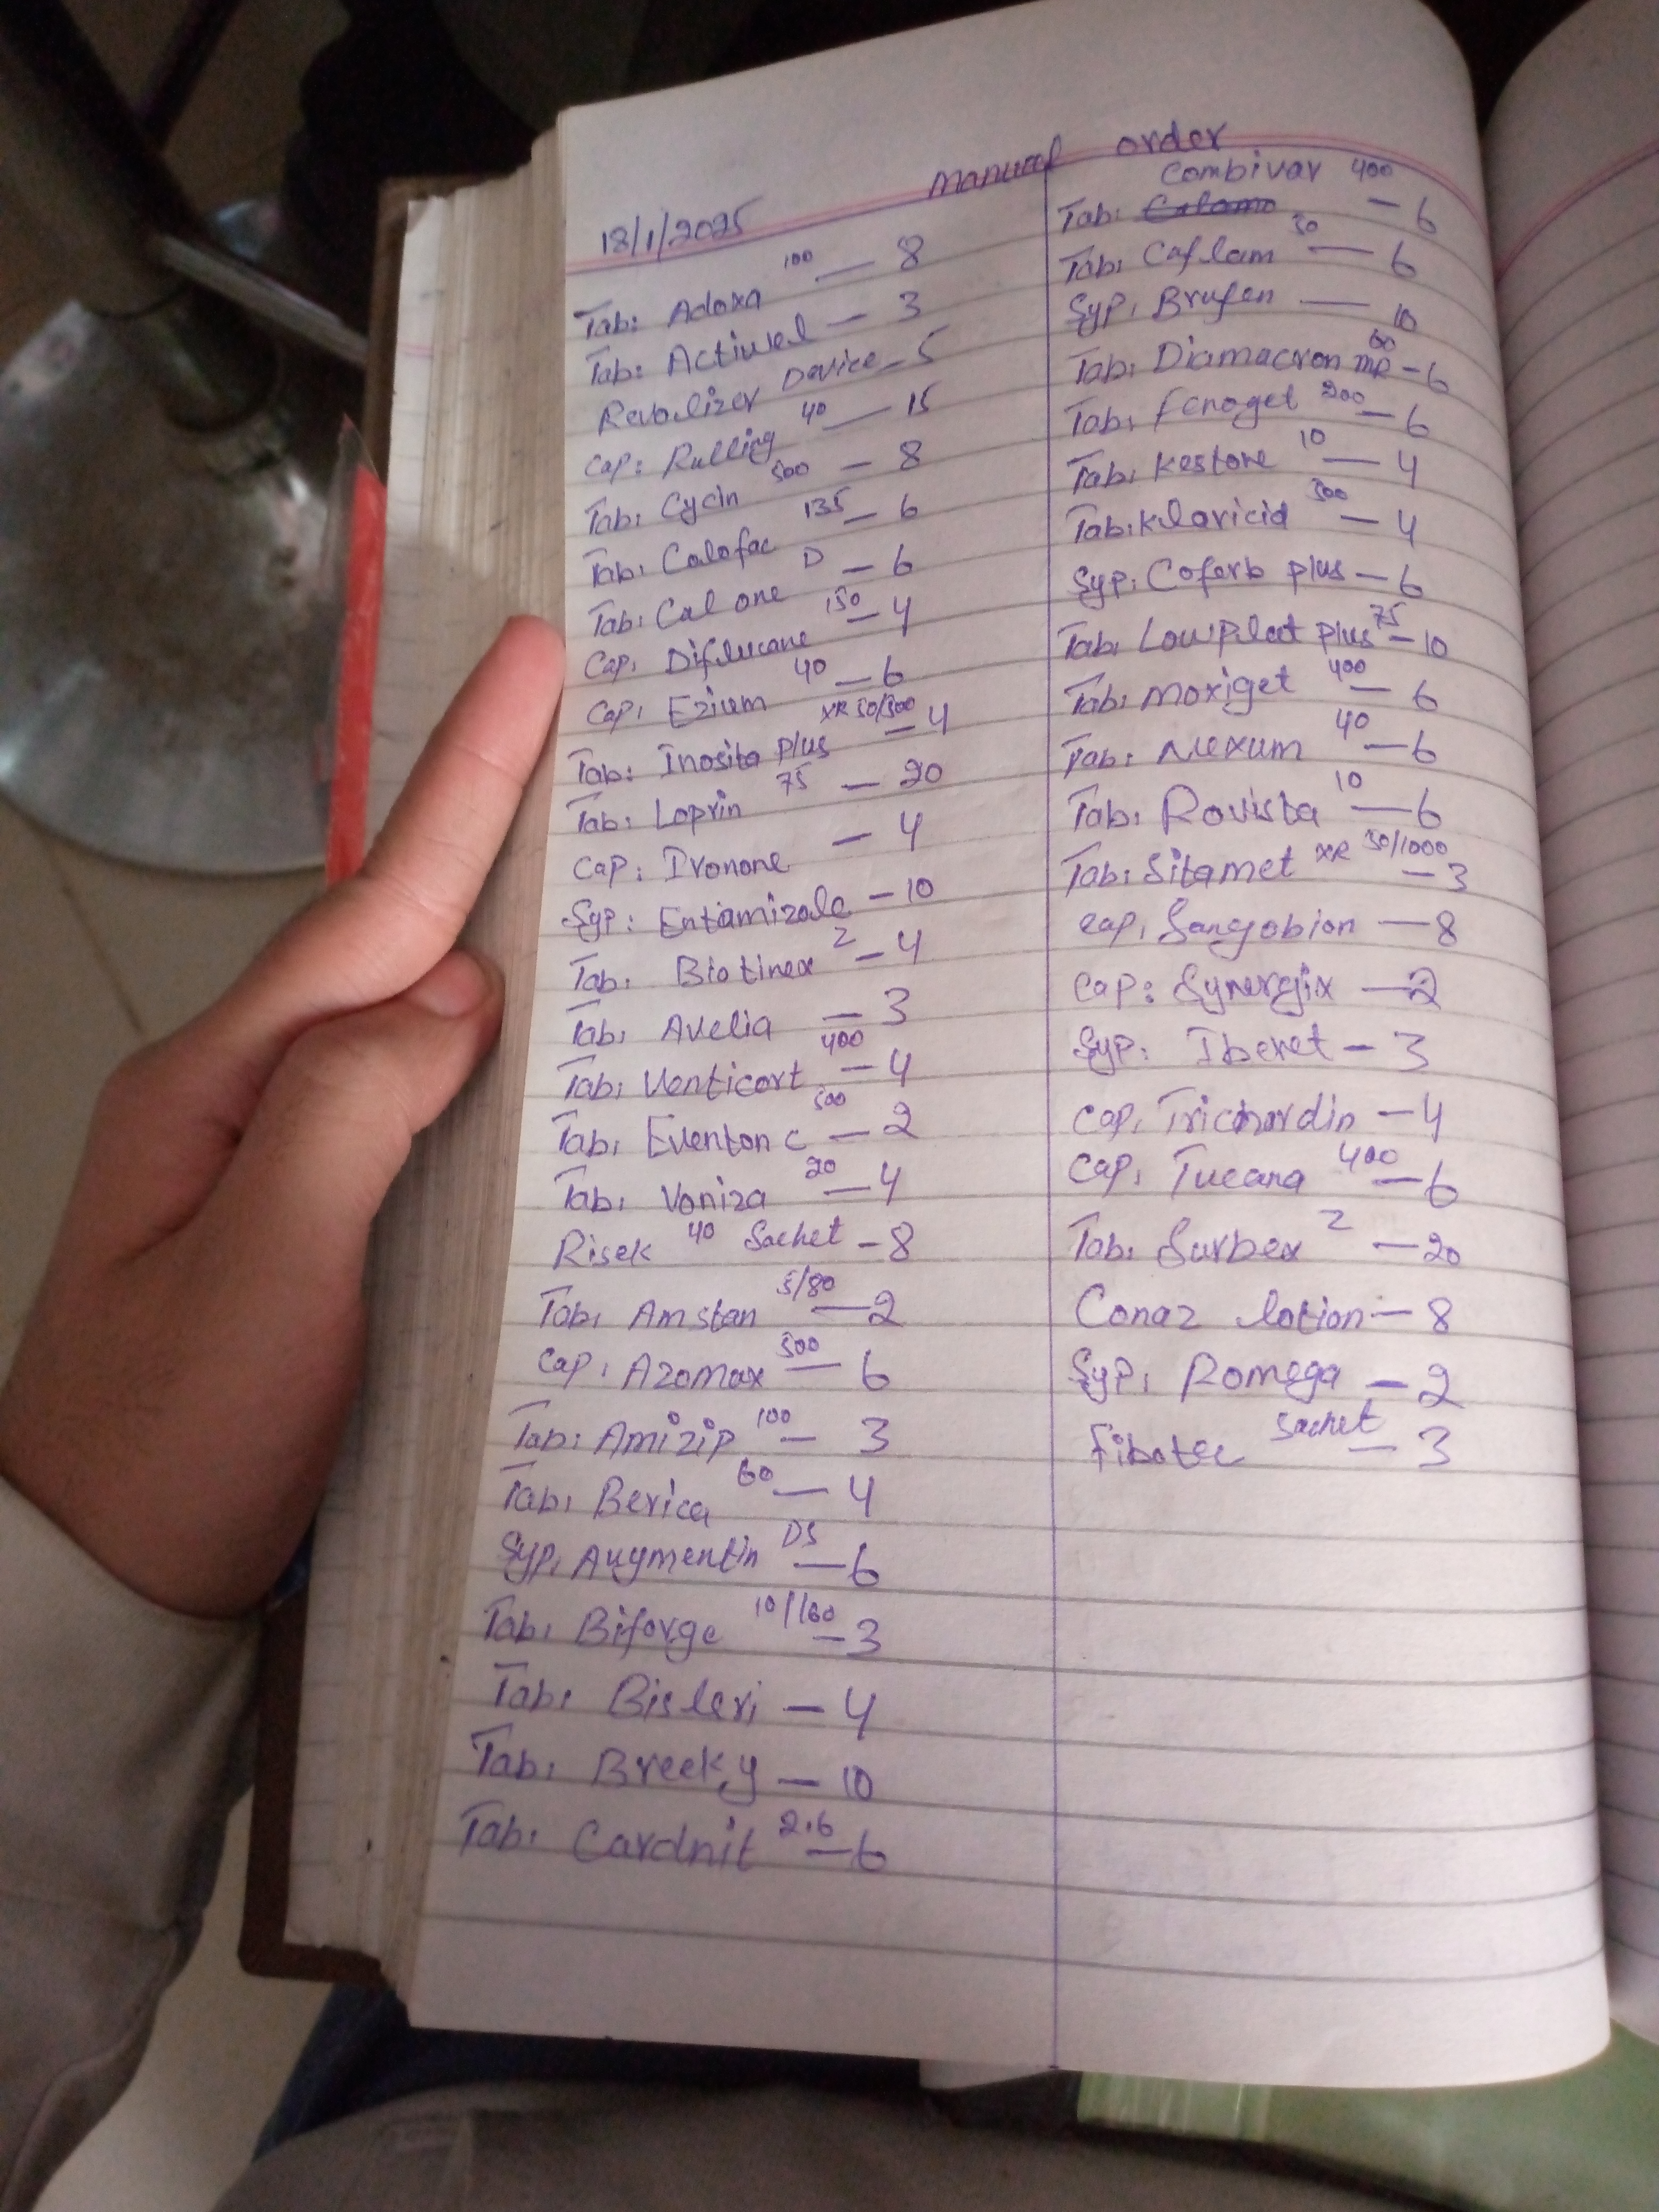 manual order
18/1/2025
Tab: Adoxa 100 — 8
Tab: Actiwel — 3
Revolizer Device - 5
Cap: Rulling 40 — 15
Tab: Cycin 500 — 8
Tab: Calofac 135 — 6
Tab: Cal one D — 6
Cap: Diflucane 150 — 4
Cap: Ezium 40 — 6
Tab: Inosita plus XR 50/500 — 4
Tab: Loprin 75 — 20
Cap: Ivonone — 4
Syp: Entamizole — 10
Tab: Biotinex 2 — 4
Tab: Avelia — 3
Tab: Venticort 400 — 4
Tab: Eventon c 500 — 2
Tab: Voniza 20 — 4
Risek 40 Sachet — 8
Tab: Amstan 5/80 — 2
Cap: Azomax 500 — 6
Tab: Amizip 100 — 3
Tab: Berica 60 — 4
Syp: Augmentin DS — 6
Tab: Biforge 10/160 — 3
Tab: Bisleri — 4
Tab: Breeky — 10
Tab: Cardnit 2.6 — 6
Combivar 400
Tab: — 6
Tab: Caflam 50 — 6
Syp: Brufen — 10
Tab: Diamacron MR 60 — 6
Tab: fenoget 200 — 6
Tab: Kestone 10 — 4
Tab: Klaricid 500 — 4
Syp: Coferb plus — 6
Tab: Lowplat plus 75 — 10
Tab: Moxiget 400 — 6
Tab: Nexum 40 — 6
Tab: Rovista 10 — 6
Tab: Sitamet XR 50/1000 — 3
Cap: Sangobion — 8
Cap: Synergix — 2
Syp: Iberet — 3
Cap: Tricardin — 4
Cap: Tucana 400 — 6
Tab: Surbex 2 — 20
Conaz lotion — 8
Syp: Romega — 2
Fibotec sachet — 3